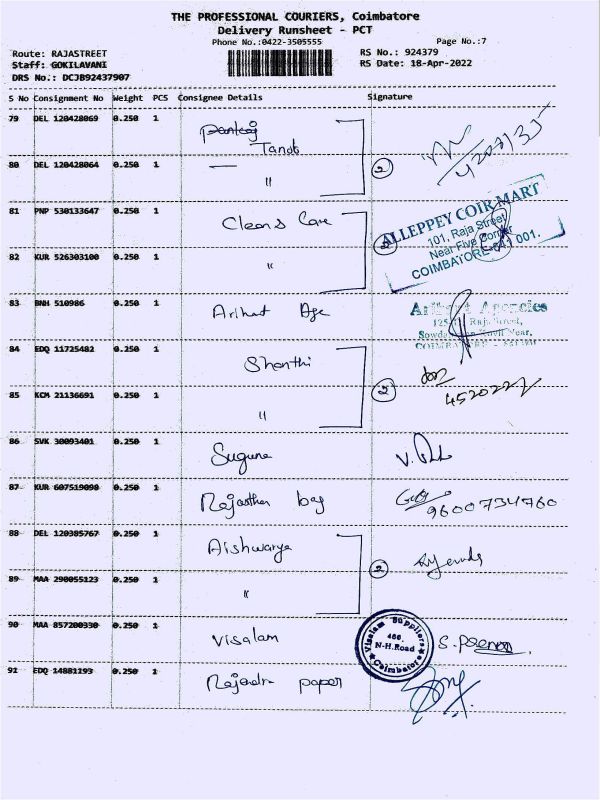 THE PROFESSIONAL COURIERS, Coimbatore
Delivery Runsheet - PCT
Phone No.:0422-3505555 Page No.:7
Route: RAJASTREET RS No.: 924379
Staff: GOKILAVANI RS Date: 18-Apr-2022
DRS No.: DCJB92437907
S No Consignment No Weight PCS Consignee Details Signature
79 DEL 120428069 0.250 1 pankaj
Tandt
80 DEL 120428064 0.250 1 — "
2
81 PNP 530133647 0.250 1 Clean & Care
ALLEPPEY COIR MART
101, Raja Street
Near Five Corner
COIMBATORE-641 001.
82 KUR 526303100 0.250 1 "
83 BNH 510986 0.250 1 Arihat Age
Arihant Agencies
125, Raja Street,
COIMBATORE - 641001
84 EDQ 11725482 0.250 1 Shanthi
2
85 KCM 21136691 0.250 1 "
86 SVK 30093401 0.250 1 Suguna
87 KUR 607519098 0.250 1 Rajasthan bag
9600734760
88 DEL 120385767 0.250 1 Aishwarya
2
89 MAA 290055123 0.250 1 "
90 MAA 857200330 0.250 1 Visalam
Visalam Suppliers
466,
N-H.Road
Coimbatore
91 EDQ 14881193 0.250 1 Rajendra paper